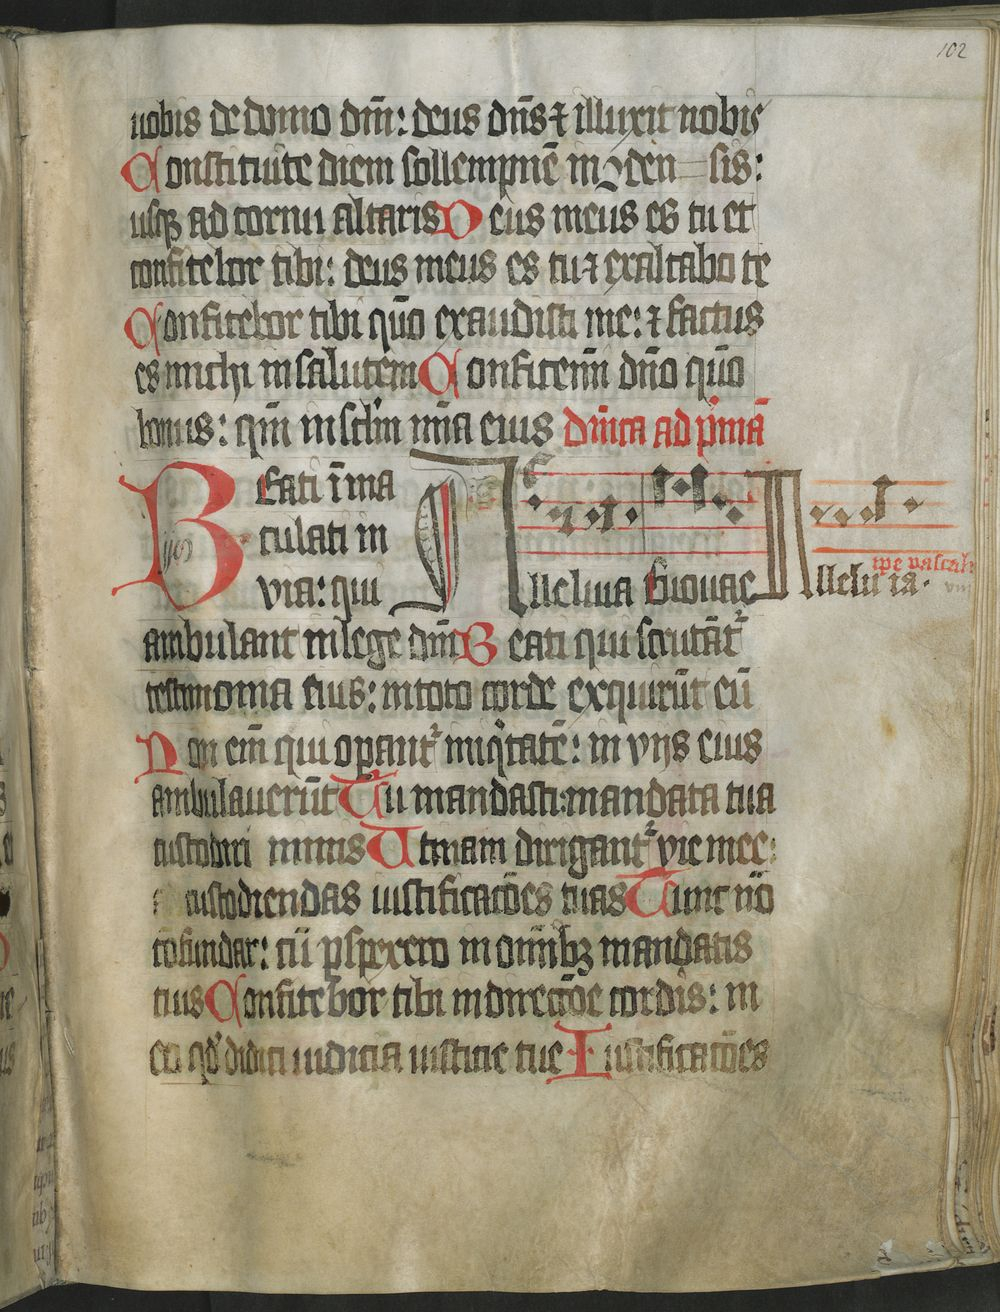 102
nobis de domo dni: deus dns ⁊ illuxit nobis
Constituite diem sollempnē in ꝯden sis:
usqꝫ ad cornu altaris Deus meus es tu et
confitebor tibi: deus meus es tu ⁊ exaltabo te
Confitebor tibi qūo exaudisti me: ⁊ factus
es michi in salutem Confitemī dño qūo
bonus: qm̄ in sclm̄ mīa eius dn̄ica ad pͥmā
Beati īma
culati in
via: qui
Alleluia Euouae Alleluia.
tꝑe pascali
ambulant in lege dn̄i Beati qui scrutāt᷑
testimonia eius: in toto corde exquirūt eū
Non em̄ qui opant᷑ iniqͥtatē: in vijs eius
ambulauerūt Tu mandasti: mandata tua
custodiri nimis Utinam dirigant᷑ vie mee:
ad custodiendas iustificacōes tuas Tunc nō
cōfundar: cū ꝑspexero in om̄ibꝫ mandatis
tuis Confitebor tibi in direccōe cordis: in
eo qd̓ didici iudicia iusticie tue Iustificacōes